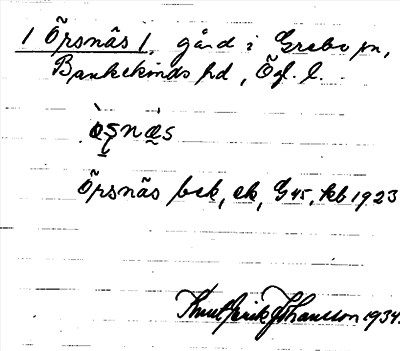 1 Örsnäs 1, gård i Grebo sn,
Bankekinds hd, Ögl. l.
Örsnäs bek, ek, G 45, kb 1923
Knut Erik Johansson 1934.